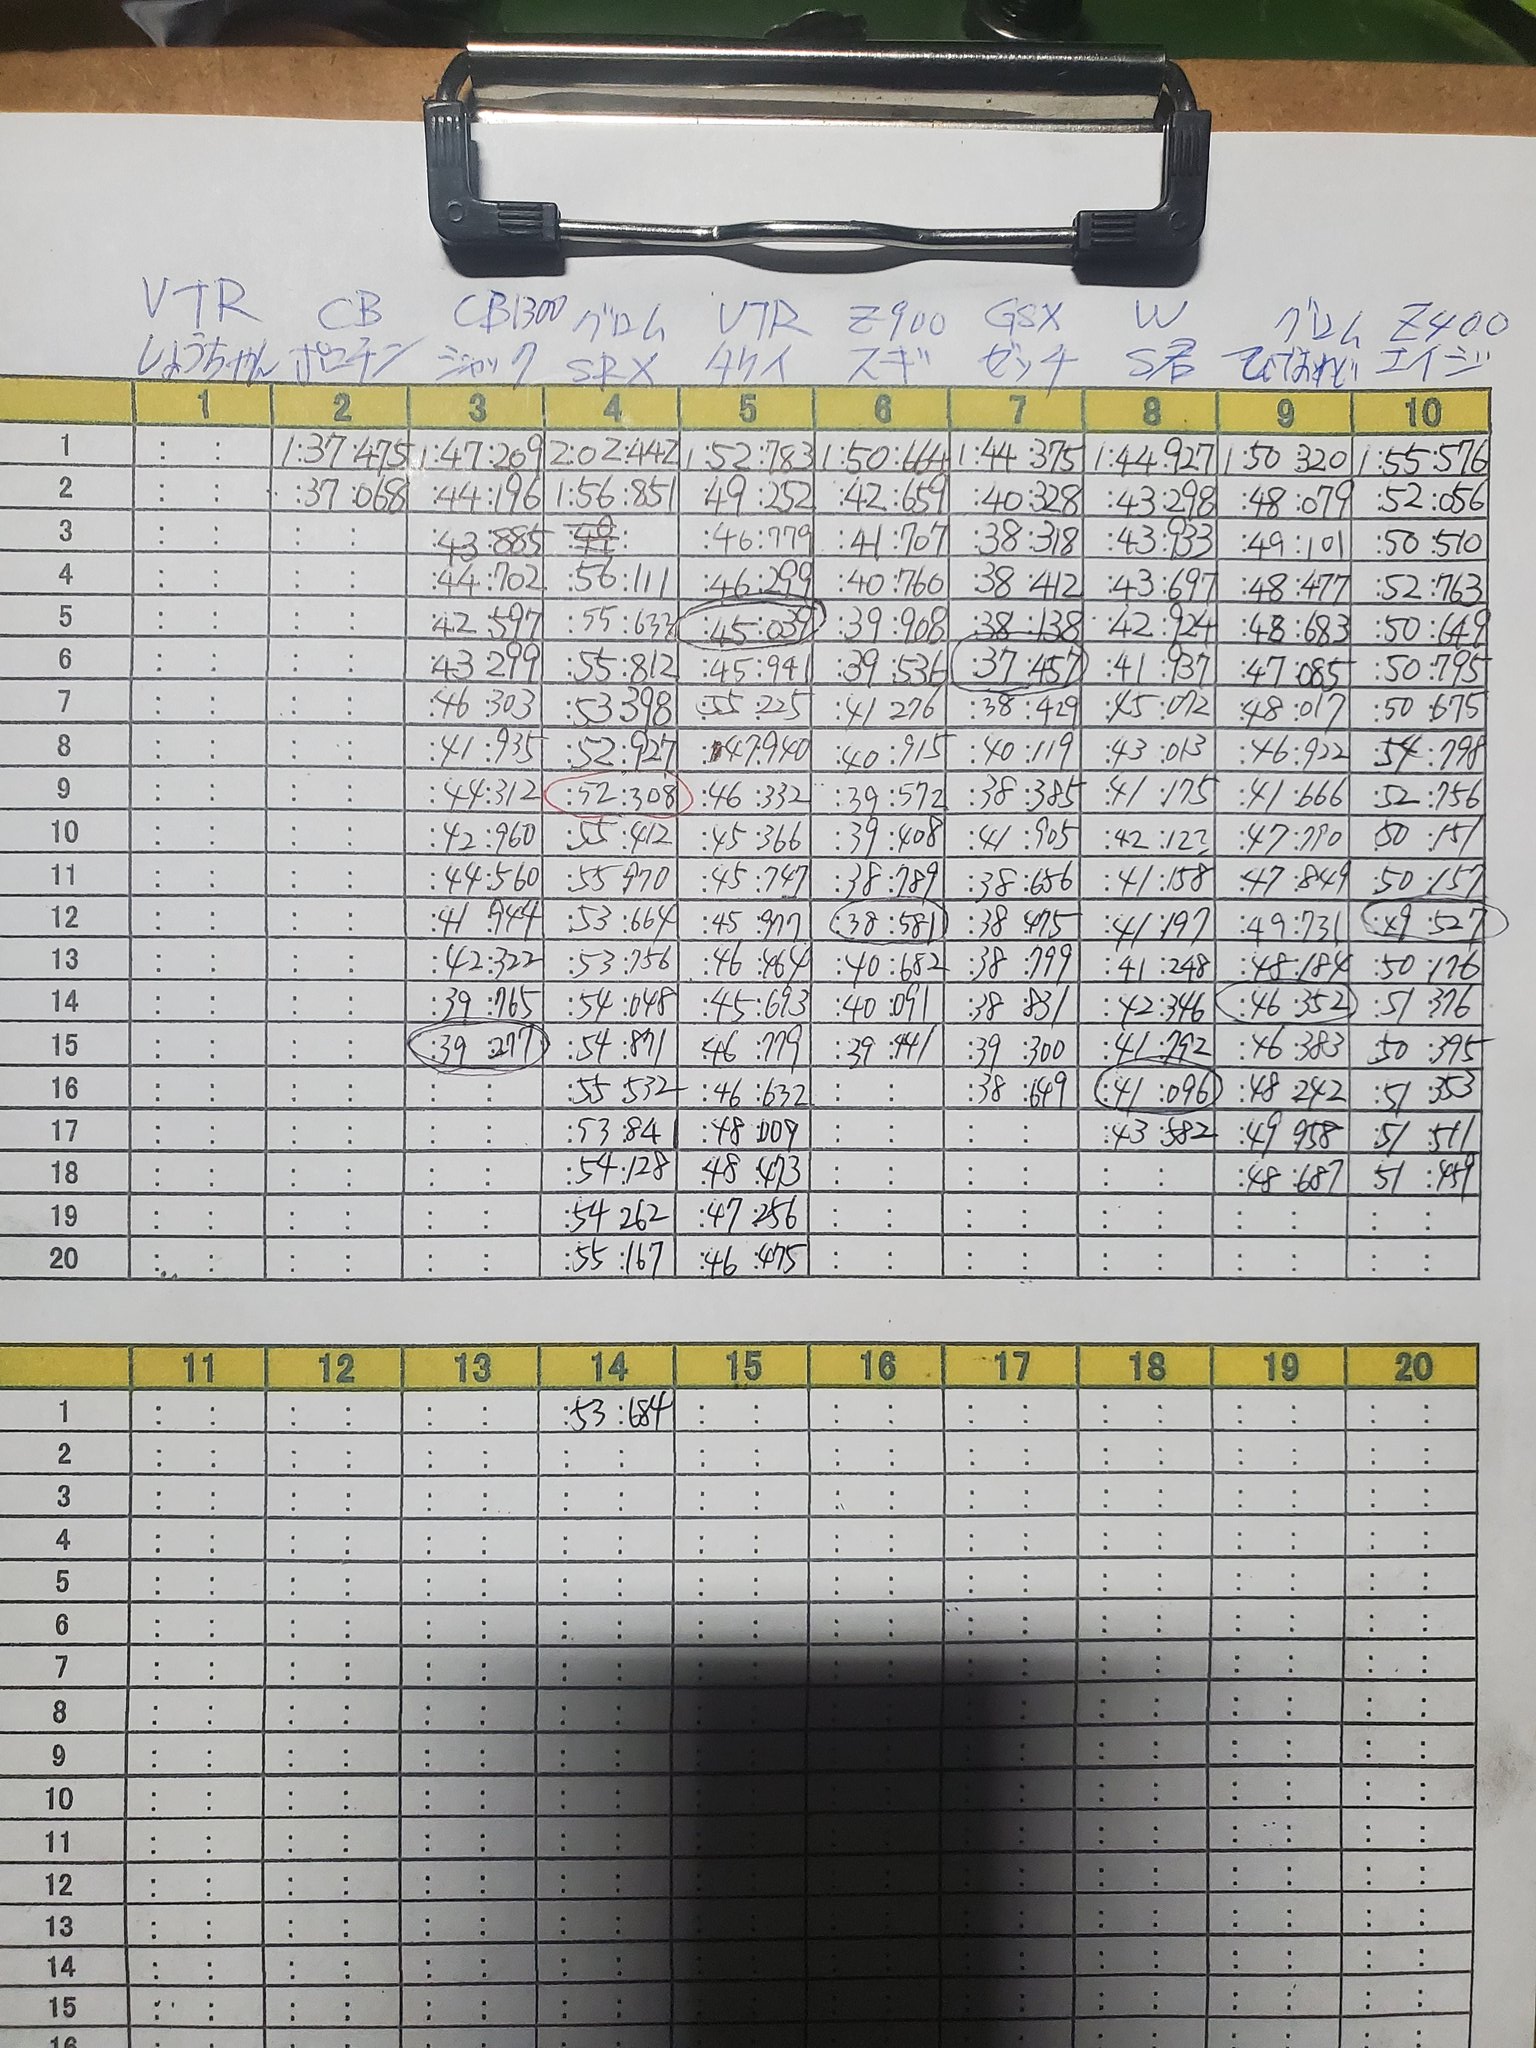 VTR CB CB1300 グロム VTR Z900 GSX W グロム Z400
しょうちゃん ジャック SRX タケイ スギ ゼッケ S君 エイジ
1 2 3 4 5 6 7 8 9 10
1 : : 1:37:475 1:47:209 2:02:442 1:52:783 1:50:664 1:44:375 1:44:927 1:50 320 1:55:576
2 : : :37:068 :44:196 1:56:851 :49:252 :42:659 :40:328 :43:298 :48:079 :52:056
3 : : : : :43:885 :46:779 :41:707 :38:318 :43:933 :49:101 :50:510
4 : : : : :44:702 :56:111 :46:299 :40:760 :38:412 :43:697 :48:477 :52:763
5 : : : : :42:597 :55:633 :45:039 :39:908 :38:138 :42:924 :48:683 :50:649
6 : : : : :43:299 :55:812 :45:941 :39:536 :37:457 :41:937 :47:085 :50:795
7 : : : : :46:303 :53:398 :55:225 :41:276 :38:429 :45:072 :48:017 :50:675
8 : : : : :41:935 :52:927 :47:940 :40:915 :40:119 :43:013 :46:922 :54:798
9 : : : : :44:312 :52:308 :46:332 :39:572 :38:385 :41:175 :41:666 :52:756
10 : : : : :42:960 :55:412 :45:366 :39:408 :41:905 :42:122 :47:790 50:151
11 : : : : :44:560 :55:970 :45:747 :38:789 :38:656 :41:158 :47:849 :50:157
12 : : : : :41:944 :53:664 :45:977 :38:581 :38:475 :41:197 :49:731 :49:527
13 : : : : :42:322 :53:756 :46:464 :40:682 :38:799 :41:248 :48:184 :50:176
14 : : : : :39:765 :54:048 :45:693 :40:091 :38:831 :42:346 :46:352 :51:376
15 : : : : :39:277 :54:871 :46:779 :39:441 :39:300 :41:792 :46:383 :50:395
16 : : : : : : :55:532 :46:632 : : :38:649 :41:096 :48:242 :51:353
17 : : : : : : :53:841 :48:009 : : : : :43:582 :49:958 :51:511
18 : : : : : : :54:128 :48:473 : : : : : : :48:687 51:459
19 : : : : : : :54:262 :47:256 : : : : : : : : : :
20 : : : : : : :55:167 :46:475 : : : : : : : : : :
11 12 13 14 15 16 17 18 19 20
1 : : : : : : :53:684 : : : : : : : : : : : :
2 : : : : : : : : : : : : : : : : : : : :
3 : : : : : : : : : : : : : : : : : : : :
4 : : : : : : : : : : : : : : : : : : : :
5 : : : : : : : : : : : : : : : : : : : :
6 : : : : : : : : : : : : : : : : : : : :
7 : : : : : : : : : : : : : : : : : : : :
8 : : : : : : : : : : : : : : : : : : : :
9 : : : : : : : : : : : : : : : : : : : :
10 : : : : : : : : : : : : : : : : : : : :
11 : : : : : : : : : : : : : : : : : : : :
12 : : : : : : : : : : : : : : : : : : : :
13 : : : : : : : : : : : : : : : : : : : :
14 : : : : : : : : : : : : : : : : : : : :
15 : : : : : : : : : : : : : : : : : : : :
16